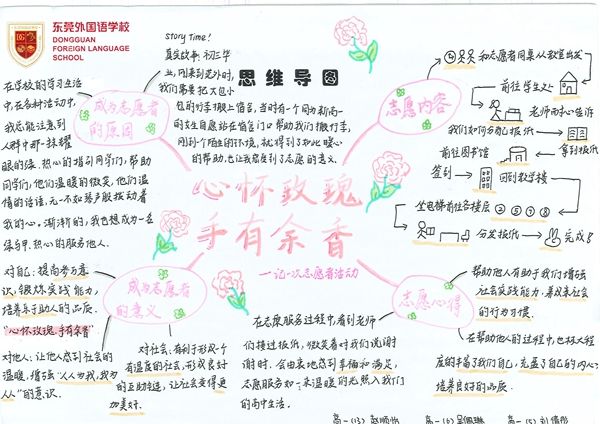 东莞外国语学校
DONGGUAN
FOREIGN LANGUAGE
SCHOOL
思维导图
心怀玫瑰
手有余香
—记一次志愿者活动
成为志愿者
的原因
Story Time!
真实故事：初三毕
业，刚来到莞外时，
我们需要把大包小
包的行李搬上宿舍，当时有一个同为新高一
的女生自愿站在宿舍门口帮助我们搬行李，
刚到一个陌生的环境，就得到了如此暖心
的帮助，也让我感受到了志愿的意义。
在学校的学习生活
中，在各种活动中，
我总能注意到
人群中那一抹耀
眼的绿。热心的指引同学们，帮助
同学们，他们温暖的微笑，他们温
情的话语，无一不如琴声般拨动着
我的心。渐渐的，我也想成为一名
绿马甲，热心的服务他人。
志愿内容
和志愿者同桌从教室出发
前往学生处
老师耐心告诉
我们如何分配报纸
拿到报纸
前往图书馆
签到
回到教学楼
坐电梯前往各楼层
②⑤⑦⑧
分发报纸
完成了
成为志愿者
的意义
对自己：提高参与意
识，锻炼实践能力，
培养乐于助人的品质。
“心怀玫瑰，手有余香”
对他人：让他人感到社会的
温暖，增强“人人为我，我为
人人”的意识。
对社会：有利于形成一个
有温度的社会，形成良好
的互助轮廻，让社会变得更
加美好。
志愿心得
帮助他人有助于我们增强
社会实践能力，养成来社会
的行为习惯。
在帮助他人的过程中，也极大程
度的丰富了我们自己，充盈了自己的内心，
培养良好的品质。
在志愿服务过程中，看到老师
们接过报纸，微笑着对我们说谢
谢时，会由衷地感到幸福和满足，
志愿服务如一束温暖的光照入我们
的高中生活。
高一(13)
高一(6)
高一(5)